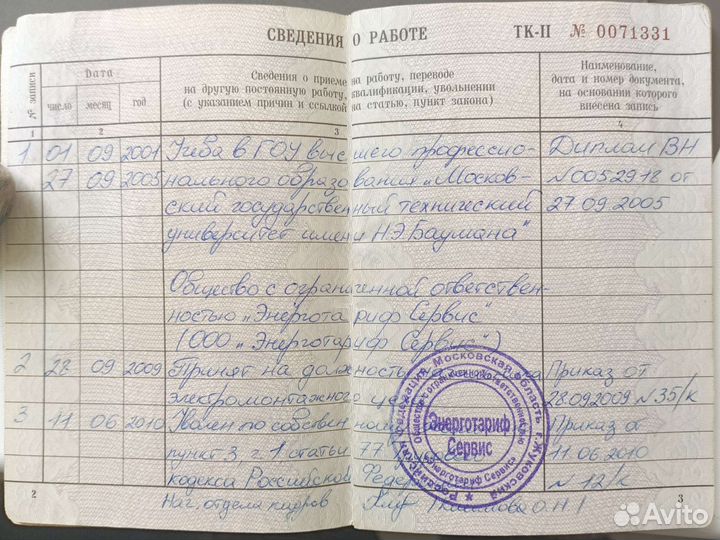 СВЕДЕНИЯ О РАБОТЕ ТК-II № 0071331
№ записи
Дата
число месяц год
Сведения о приеме на работу, переводе
на другую постоянную работу, квалификации, увольнении
(с указанием причин и ссылкой на статью, пункт закона)
Наименование,
дата и номер документа,
на основании которого
внесена запись
1 2 3 4
1 01 09 2001 Учеба в ГОУ высшего профессио- Диплом ВН
27 09 2005 нального образования "Москов- N0052918 от
ский государственный технический 27.09.2005
университет имени Н.Э.Баумана"
Общество с ограниченной ответствен-
ностью "Энерготариф Сервис"
(ООО "Энерготариф Сервис")
2 28 09 2009 Принят на должность Приказ от
электромонтажного цеха 28.09.2009 N 35/к
3 11 06 2010 Уволен по собствен Приказ от
пункт 3, ч. 1 статьи 77 11.06.2010
кодекса Российской Федер N 12/к
Нач. отдела кадров О.Н.
Российская Федерация Московская область г. Жуковский
Общество с ограниченной ответственностью
"Энерготариф Сервис"
Энерготариф
Сервис
2 3
Avito